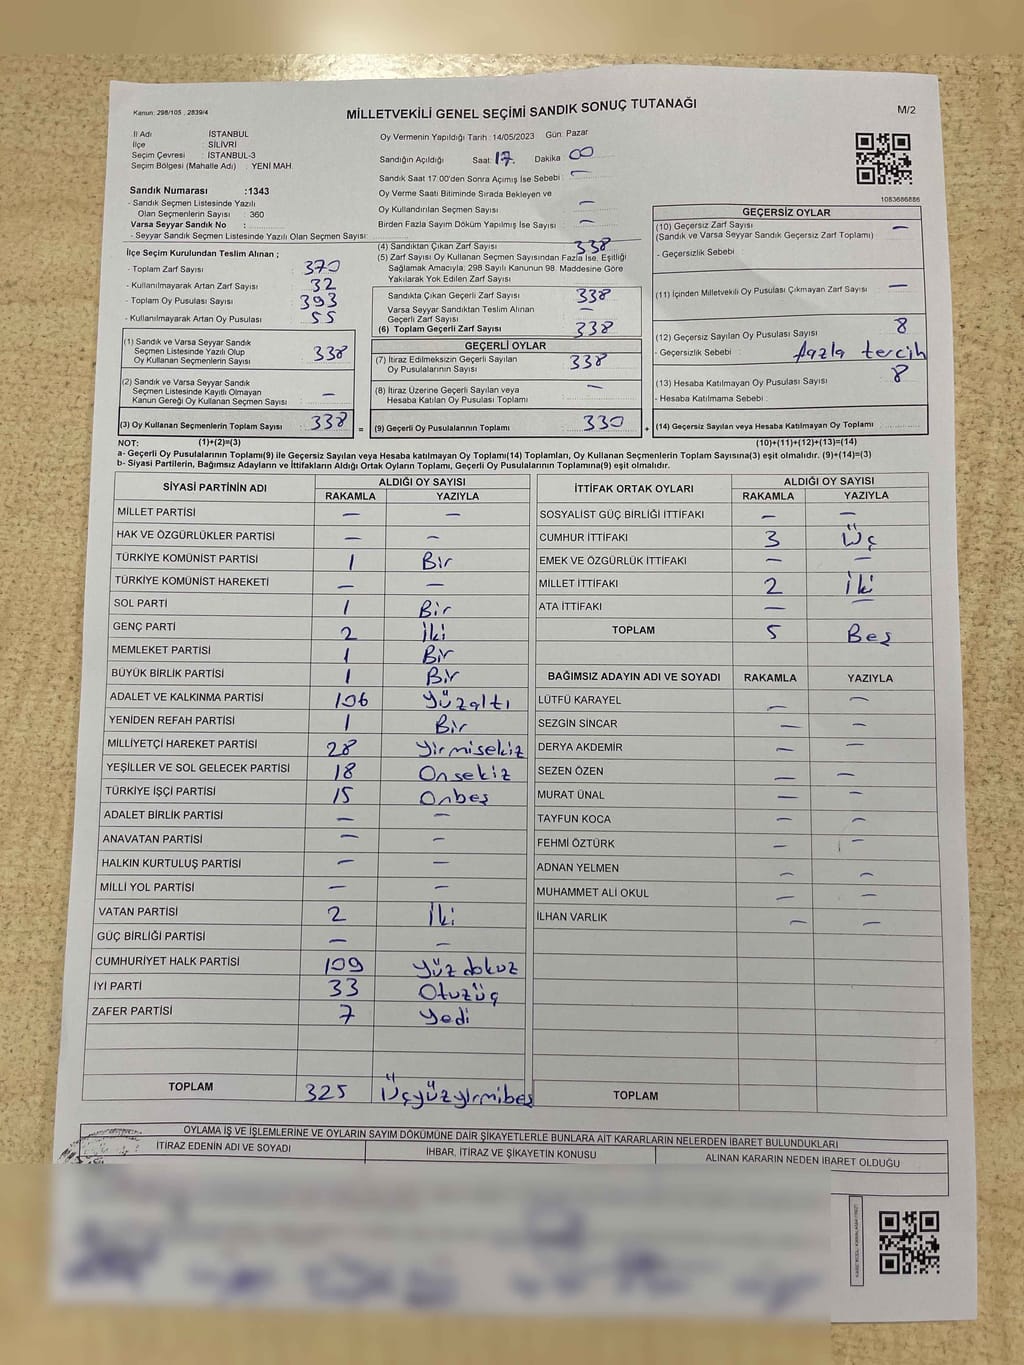 Kanun: 298/105 , 2839/4
MİLLETVEKİLİ GENEL SEÇİMİ SANDIK SONUÇ TUTANAĞI
M/2
İl Adı : İSTANBUL
İlçe : SİLİVRİ
Seçim Çevresi : İSTANBUL-3
Seçim Bölgesi (Mahalle Adı) : YENİ MAH.
Sandık Numarası :1343
- Sandık Seçmen Listesinde Yazılı
Olan Seçmenlerin Sayısı : 360
Varsa Seyyar Sandık No :
- Seyyar Sandık Seçmen Listesinde Yazılı Olan Seçmen Sayısı:
Oy Vermenin Yapıldığı Tarih :14/05/2023 Gün: Pazar
Sandığın Açıldığı Saat: 17. Dakika 00
Sandık Saat 17:00'den Sonra Açımış İse Sebebi : —
Oy Verme Saati Bitiminde Sırada Bekleyen ve
Oy Kullandırılan Seçmen Sayısı : —
Birden Fazla Sayım Döküm Yapılmış İse Sayısı : —
1083686886
İlçe Seçim Kurulundan Teslim Alınan ;
- Toplam Zarf Sayısı : 370
- Kullanılmayarak Artan Zarf Sayısı : 32
- Toplam Oy Pusulası Sayısı : 393
- Kullanılmayarak Artan Oy Pusulası : 55
(1) Sandık ve Varsa Seyyar Sandık
Seçmen Listesinde Yazılı Olup
Oy Kullanan Seçmenlerin Sayısı : 338
(2) Sandık ve Varsa Seyyar Sandık
Seçmen Listesinde Kayıtlı Olmayan
Kanun Gereği Oy Kullanan Seçmen Sayısı : —
(3) Oy Kullanan Seçmenlerin Toplam Sayısı : 338 =
(4) Sandıktan Çıkan Zarf Sayısı : 338
(5) Zarf Sayısı Oy Kullanan Seçmen Sayısından Fazla İse, Eşitliği
Sağlamak Amacıyla; 298 Sayılı Kanunun 98. Maddesine Göre
Yakılarak Yok Edilen Zarf Sayısı :
Sandıkta Çıkan Geçerli Zarf Sayısı : 338
Varsa Seyyar Sandıktan Teslim Alınan
Geçerli Zarf Sayısı : —
(6) Toplam Geçerli Zarf Sayısı : 338
GEÇERLİ OYLAR
(7) İtiraz Edilmeksizin Geçerli Sayılan
Oy Pusulalarının Sayısı : 338
(8) İtiraz Üzerine Geçerli Sayılan veya
Hesaba Katılan Oy Pusulası Toplamı : —
(9) Geçerli Oy Pusulalarının Toplamı : 330 +
GEÇERSİZ OYLAR
(10) Geçersiz Zarf Sayısı : —
(Sandık ve Varsa Seyyar Sandık Geçersiz Zarf Toplamı)
- Geçersizlik Sebebi :
(11) İçinden Milletvekili Oy Pusulası Çıkmayan Zarf Sayısı : —
(12) Geçersiz Sayılan Oy Pusulası Sayısı : 8
- Geçersizlik Sebebi : fazla tercih
(13) Hesaba Katılmayan Oy Pusulası Sayısı : 8
- Hesaba Katılmama Sebebi :
(14) Geçersiz Sayılan veya Hesaba Katılmayan Oy Toplamı :
NOT: (1)+(2)=(3) (10)+(11)+(12)+(13)=(14)
a- Geçerli Oy Pusulalarının Toplamı(9) ile Geçersiz Sayılan veya Hesaba Katılmayan Oy Toplamı(14) Toplamları, Oy Kullanan Seçmenlerin Toplam Sayısına(3) eşit olmalıdır. (9)+(14)=(3)
b- Siyasi Partilerin, Bağımsız Adayların ve İttifakların Aldığı Ortak Oyların Toplamı, Geçerli Oy Pusulalarının Toplamına(9) eşit olmalıdır.
SİYASİ PARTİNİN ADI ALDIĞI OY SAYISI
RAKAMLA YAZIYLA
MİLLET PARTİSİ — —
HAK VE ÖZGÜRLÜKLER PARTİSİ — —
TÜRKİYE KOMÜNİST PARTİSİ 1 Bir
TÜRKİYE KOMÜNİST HAREKETİ — —
SOL PARTİ 1 Bir
GENÇ PARTİ 2 İki
MEMLEKET PARTİSİ 1 Bir
BÜYÜK BİRLİK PARTİSİ 1 Bir
ADALET VE KALKINMA PARTİSİ 106 Yüzaltı
YENİDEN REFAH PARTİSİ 1 Bir
MİLLİYETÇİ HAREKET PARTİSİ 28 Yirmisekiz
YEŞİLLER VE SOL GELECEK PARTİSİ 18 Onsekiz
TÜRKİYE İŞÇİ PARTİSİ 15 Onbeş
ADALET BİRLİK PARTİSİ — —
ANAVATAN PARTİSİ — —
HALKIN KURTULUŞ PARTİSİ — —
MİLLİ YOL PARTİSİ — —
VATAN PARTİSİ 2 İki
GÜÇ BİRLİĞİ PARTİSİ — —
CUMHURİYET HALK PARTİSİ 109 Yüzdokuz
İYİ PARTİ 33 Otuzüç
ZAFER PARTİSİ 7 Yedi
TOPLAM 325 Üçyüzyirmibeş
İTTİFAK ORTAK OYLARI ALDIĞI OY SAYISI
RAKAMLA YAZIYLA
SOSYALİST GÜÇ BİRLİĞİ İTTİFAKI — —
CUMHUR İTTİFAKI 3 Üç
EMEK VE ÖZGÜRLÜK İTTİFAKI — —
MİLLET İTTİFAKI 2 İki
ATA İTTİFAKI — —
TOPLAM 5 Beş
BAĞIMSIZ ADAYIN ADI VE SOYADI RAKAMLA YAZIYLA
LÜTFÜ KARAYEL — —
SEZGİN SİNCAR — —
DERYA AKDEMİR — —
SEZEN ÖZEN — —
MURAT ÜNAL — —
TAYFUN KOCA — —
FEHMİ ÖZTÜRK — —
ADNAN YELMEN — —
MUHAMMET ALİ OKUL — —
İLHAN VARLIK — —
TOPLAM
OYLAMA İŞ VE İŞLEMLERİNE VE OYLARIN SAYIM DÖKÜMÜNE DAİR ŞİKAYETLERLE BUNLARA AİT KARARLARIN NELERDEN İBARET BULUNDUKLARI
İTİRAZ EDENİN ADI VE SOYADI İHBAR, İTİRAZ VE ŞİKAYETİN KONUSU ALINAN KARARIN NEDEN İBARET OLDUĞU